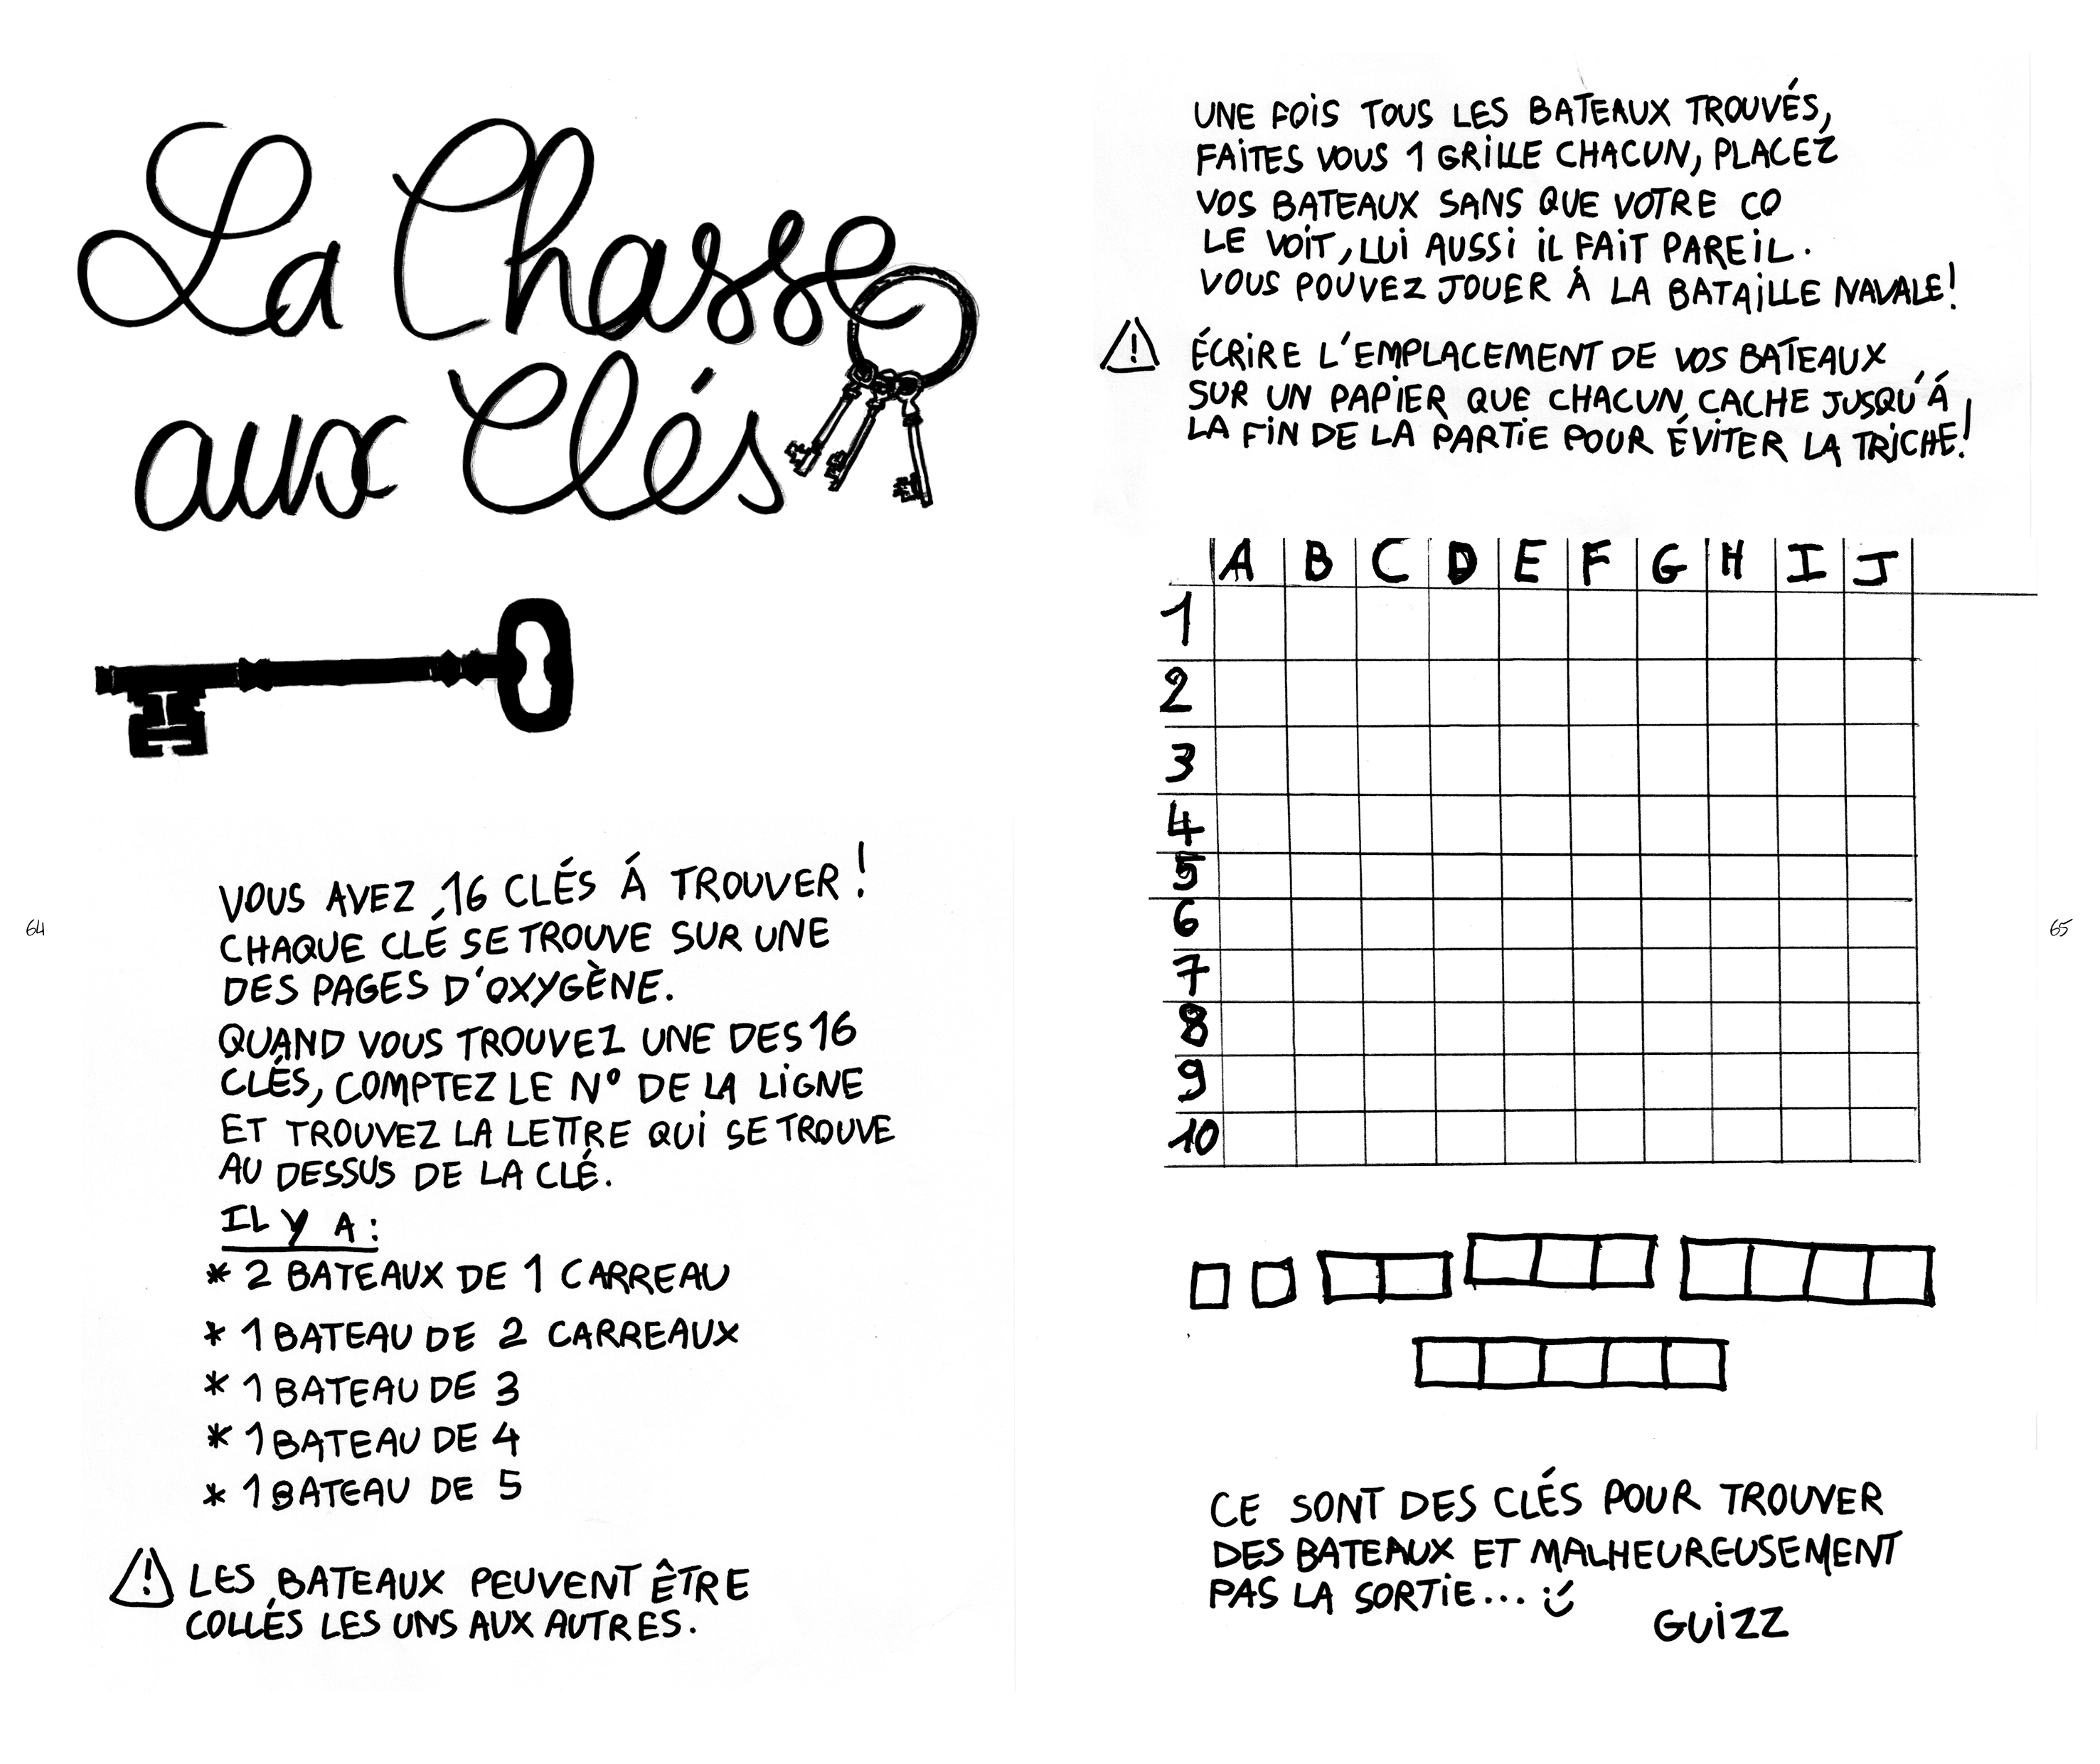 La Chasse
aux Clés
VOUS AVEZ 16 CLÉS Á TROUVER !
CHAQUE CLÉ SE TROUVE SUR UNE
DES PAGES D'OXYGÈNE.
QUAND VOUS TROUVEZ UNE DES 16
CLÉS, COMPTEZ LE N° DE LA LIGNE
ET TROUVEZ LA LETTRE QUI SE TROUVE
AU DESSUS DE LA CLÉ.
IL Y A :
* 2 BATEAUX DE 1 CARREAU
* 1 BATEAU DE 2 CARREAUX
* 1 BATEAU DE 3
* 1 BATEAU DE 4
* 1 BATEAU DE 5
⚠ LES BATEAUX PEUVENT ÊTRE
COLLÉS LES UNS AUX AUTRES.
64
UNE FOIS TOUS LES BATEAUX TROUVÉS,
FAITES VOUS 1 GRILLE CHACUN, PLACEZ
VOS BATEAUX SANS QUE VOTRE CO
LE VOIT, LUI AUSSI IL FAIT PAREIL.
VOUS POUVEZ JOUER Á LA BATAILLE NAVALE !
⚠ ÉCRIRE L'EMPLACEMENT DE VOS BATEAUX
SUR UN PAPIER QUE CHACUN CACHE JUSQU'Á
LA FIN DE LA PARTIE POUR ÉVITER LA TRICHE !
A B C D E F G H I J
1
2
3
4
5
6
7
8
9
10
CE SONT DES CLÉS POUR TROUVER
DES BATEAUX ET MALHEUREUSEMENT
PAS LA SORTIE... :)
GUIZZ
65